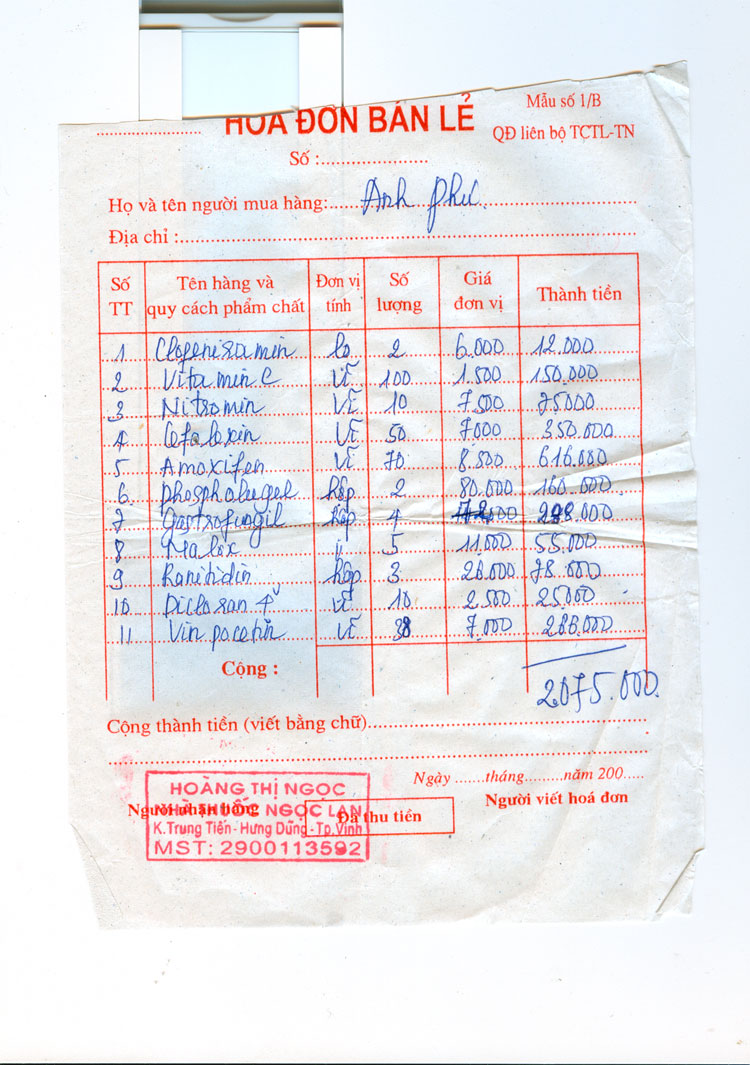 HOÁ ĐƠN BÁN LẺ
Mẫu số 1/B
QĐ liên bộ TCTL-TN
Số :
Họ và tên người mua hàng: Anh Phú
Địa chỉ :
Số TT Tên hàng và quy cách phẩm chất Đơn vị tính Số lượng Giá đơn vị Thành tiền
1 Clofenisamin lọ 2 6.000 12.000
2 Vitamin C vỉ 100 1.500 150.000
3 Nitromin vỉ 10 7500 75000
4 Cefalexin vỉ 50 7000 350.000
5 Amoxifen vỉ 70 8.500 616.000
6 phosphalugel hộp 2 80.000 160.000
7 Gastrofugil hộp 4 72.000 288.000
8 Malox 5 11.000 55.000
9 Ranitidin hộp 3 26.000 78.000
10 Diclosan 4 vỉ 10 2.500 25000
11 Vin pocetin vỉ 38 7.000 266.000
Cộng : 2.075.000
Cộng thành tiền (viết bằng chữ)
Ngày tháng năm 200
Người nhận hàng
Đã thu tiền
Người viết hoá đơn
HOÀNG THỊ NGỌC
NGỌC LAN
K.Trung Tiến - Hưng Dũng - Tp.Vinh
MST: 2900113592